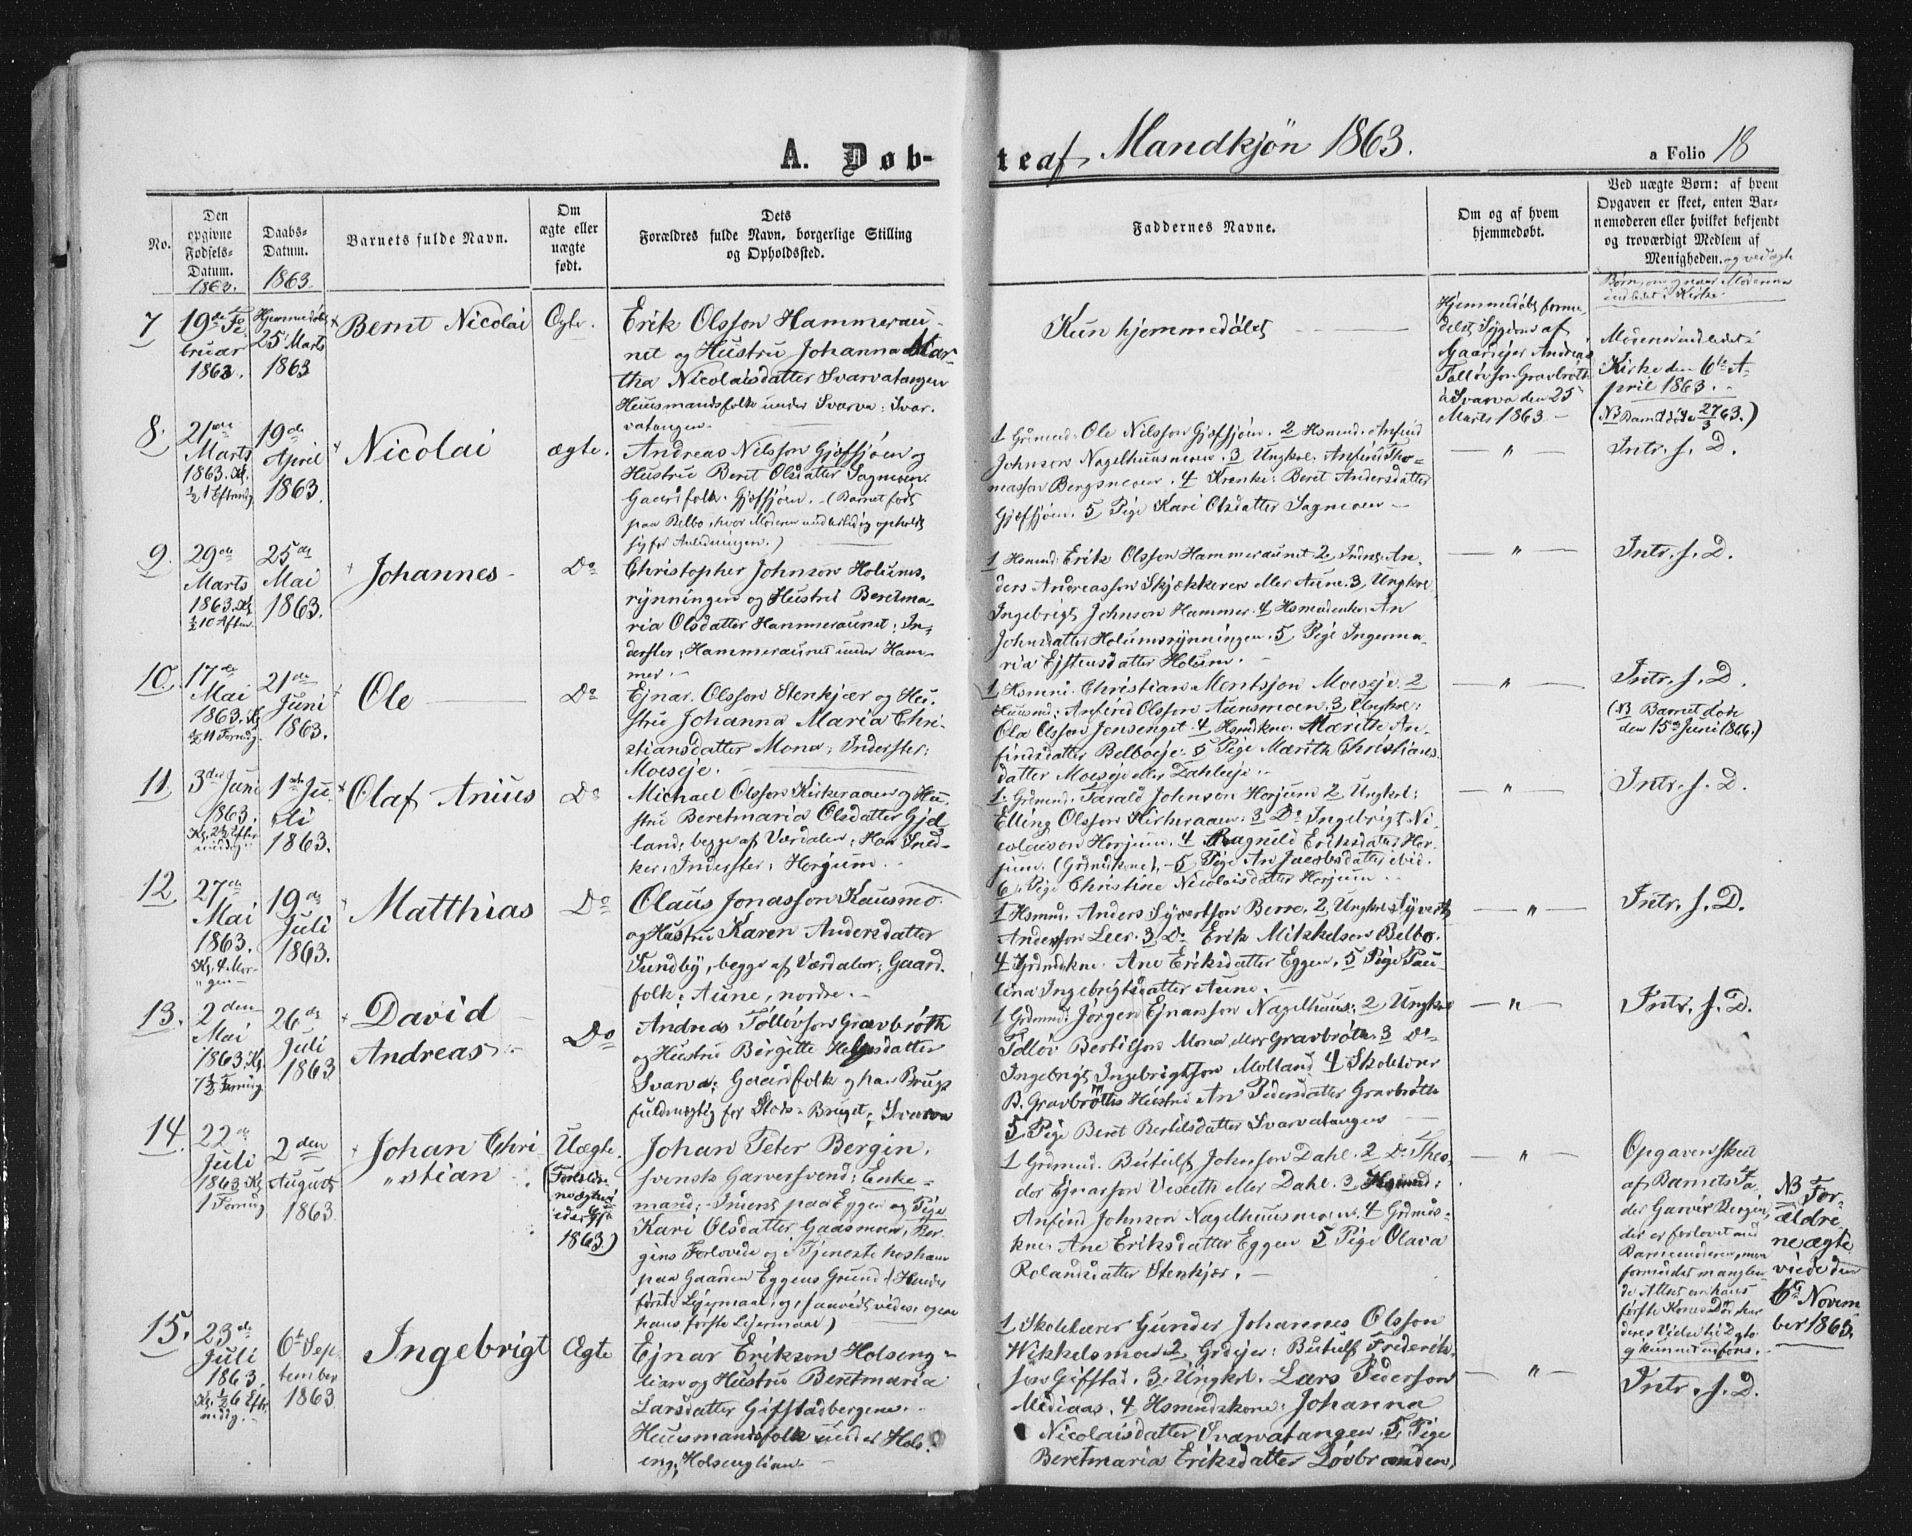 A. Døb-
te af Mandkjön 1863.
a Folio 18
No.
Den opgivne Fødsels-Datum. 1863.
Daabs-Datum. 1863.
Barnets fulde Navn.
Om ægte eller uægte født.
Dets Forældres fulde Navn, borgerlige Stilling og Opholdssted.
Faddernes Navne.
Om og af hvem hjemmedøbt.
Ved uægte Børn: af hvem
Opgaven er skeet, enten Bar-
nemoderen eller hvilket bekjendt
og troværdigt Medlem af
Menigheden. og ved ægte
Børn, om og naar Moderen
indledet i Kirke
7
19de Fe
bruar
1863.
Hjemmedöbt
25 Marts
1863
Bernt Nicolai
Ægte.
Erik Olsson Hammerau-
net og Hustru Johanna Mar-
tha Nicolaisdatter Svarvatangen
Huusmandsfolk under Svarva; Svar-
vatangen.
Kun hjemmedöbt
Hjemmedöbt forme-
delst Sygdom af
Gaardejer Andreas
Tollövson Gravbröth
i Svarva den 25
Marts 1863
Moderen indledet i
Kirke den 6te A-
pril 1863.
(NB Barnet döde 27/3 63.)
8.
21de
Marts
1863. Kl.
½ 1 Eftermdg
19de
April
1863.
Nicolai
ægte.
Andreas Nilsson Gjöfsjöen og
Hustru Beret Olsdatter Sagmoen
Gaardfolk. Gjöfsjöen. (Barnet födt
paa Belbo, hvor Moderen midlertidig opholdt
sig for Anledningen.)
1 Grdmand. Ole Nilsson Gjöfsjöen. 2 Hsmnd. Anfind
Johnson Nagelhuusmoen. 3 Ungkrl. Anfind Tho-
masson Bergsmoen. 4 Kranke: Beret Andersdatter
Gjæfsjöen. 5 Pige Kari Olsdatter Sagmoen
— " —
Intr. s. D.
9.
29de
Marts
1863. Kl.
½ 10 Aften
25de
Mai
1863.
Johannes
Do
Christopher Johnson Holums-
rynningen og Hustru Beretma-
ria Olsdatter Hammeraunet; In-
derster; Hammeraunet under Ham-
mer.
1 Hsmnd. Erik Olsson Hammeraunet. 2 Inds. An-
ders Andreasson Skjækkeren eller Aune. 3 Ungkrl
Ingebrigt Johnson Hammer. 4 Hsmandenke: An
Johnsdatter Holumsrynningen. 5 Pige Ingerma-
ria Ejstensdatter Holum.
— " —
Intr. s. D.
10.
17de
Mai
1863. Kl.
½ 11 Formdg.
21de
Juni
1863.
Ole
Do
Ejnar Olsson Stenkjær og Hu-
stru Johanna Maria Chri-
stiansdatter Mona; Inderster;
Moeseje.
1 Hsmnd. Christian Mentsson Moeseje. 2
Huusmd: Anfind Olsson Aunsmoen. 3 Ungkrl:
Ola Olsson Jensenget. 4 Hsmdkne. Marith An-
findsdatter Belboeje. 5 Pige Marith Christians-
datter Moeseje eller Dahleeje.
— " —
Intr. s. D.
(NB Barnet döde
den 15de Juni 1866.)
11
3die Juni
1863.
Kl. 2½ Efter-
middg.
1ste Ju-
li
1863.
Olaf Anius
Do
Michael Olsson Kirkeraaen og Hu-
stru Beretmaria Olsdatter Gjel
land, begge af Værdalen; Han Sned-
ker; Inderster; Horjum.
1. Grdmnd. Tarald Johnson Horjum 2 Ungkrl:
Elling Olsson Kirkeraaen. 3 Do Ingebrigt Ni-
colaisen Horjum. 4 Ragnild Eriksdatter Hor-
jum. (Grdmdkne). 5 Pige An Jacobsdatter ibid.
6. Pige Christine Nicolaisdatter Horjum.
— " —
Intr. s. D.
12
27de
Mai
1863.
Kl. 4 Mor-
gen
19de
Juli
1863.
Matthias
Do
Olaus Jonasson Kausmo
og Hustru Karen Andersdatter
Sundby, begge af Værdalen; Gaard-
folk; Aune, nordre.
1 Hsmnd. Anders Syvertson Berre. 2 Ungkrl Syvert
Anderson Leer. 3 Do Erik Mikkelson Belbo.
4 Grdmdkne. Ane Eriksdatter Eggen. 5 Pige Pau-
lina Ingebrigtsdatter Aune.
— " —
Intr. s. D.
13.
2den
Mai
1863. Kl.
7½ Formdg
26de
Juli
1863
David
Andreas
Do
Andreas Tollövson Gravbröth
og Hustru Birgitte Helgesdatter
Svarva; Gaardfolk og han Brugs-
fuldmægtig for Stods-Bruget; Svarva
1 Grdmnd. Jörgen Ejnarsson Nagelhuus; 2 Ungkrl
Tollöv Bertilson Mona eller Gravbröth. 3 Do
Ingebrigt Ingebrigtson Molland. 4 Skolelærer
B. Gravbröths Hustru An Pedersdatter Gravbröth
5 Pige Beret Bertilsdatter Svarvatangen
— " —
Intr. s. D.
14.
22de
Juli
1863 Kl.
1 Formdg
2den
August
1863.
Johan Chri
"stian
Uægte.
(Foreldre-
ne ægtevi
ede
1863)
Johan Peter Bergin,
svensk Garversvend; Enke-
mand; Inderst paa Eggen og Pige
Kari Olsdatter Gaasmoen, Ber-
gins Forlovede og i Tjeneste hos ham
paa Gaarden Eggens Grund (Hendes
förste Lejermaal og, saavidt vides, ogsaa
hans förste Lejermaal)
1 Grdmnd. Butulf Johnson Dahl. 2 Do Theo-
dor Ejnarson Veseth eller Dahl. 3 Hsmnd:
Anfind Johnson Nagelhuusmoen. 4 Grdmds-
kne. Ane Eriksdatter Eggen 5 Pige Olava
Rolandsdatter Stenkjær.
— " —
Opgaven skeet
af Barnets Fa-
der Garver Bergin,
der er forlovet med
Barnemoderen, men
formedelst manglen-
de Attest om hans
förste Kones Död, har
deres Vielse
NB For-
ældre
ne ægte
viede den
6te Novem
ber 1863.
15.
23de
Juli
1863.
Kl. ½ 6 Efter
middg.
6te Sep
tember
1863
Ingebrigt
Ægte
Ejnar Erikson Holseng-
lian og Hustru Beretmaria
Larsdatter Gifstadbergene.
Huusmandsfolk under Hols-
eng; Holsenglian.
1 Skolelærer Gunder Johannes Olsson
Wikkelsmoe 2 Grdejer: Butulf Frederik-
son Gifstad. 3. Ungkrl. Lars Pederson
Mediaas. 4 Hsmandskone: Johanna
Nicolaisdatter Svarvatangen. 5 Pige
Beretmaria Eriksdatter Lövbranden,
— " —
Intr. s. D.